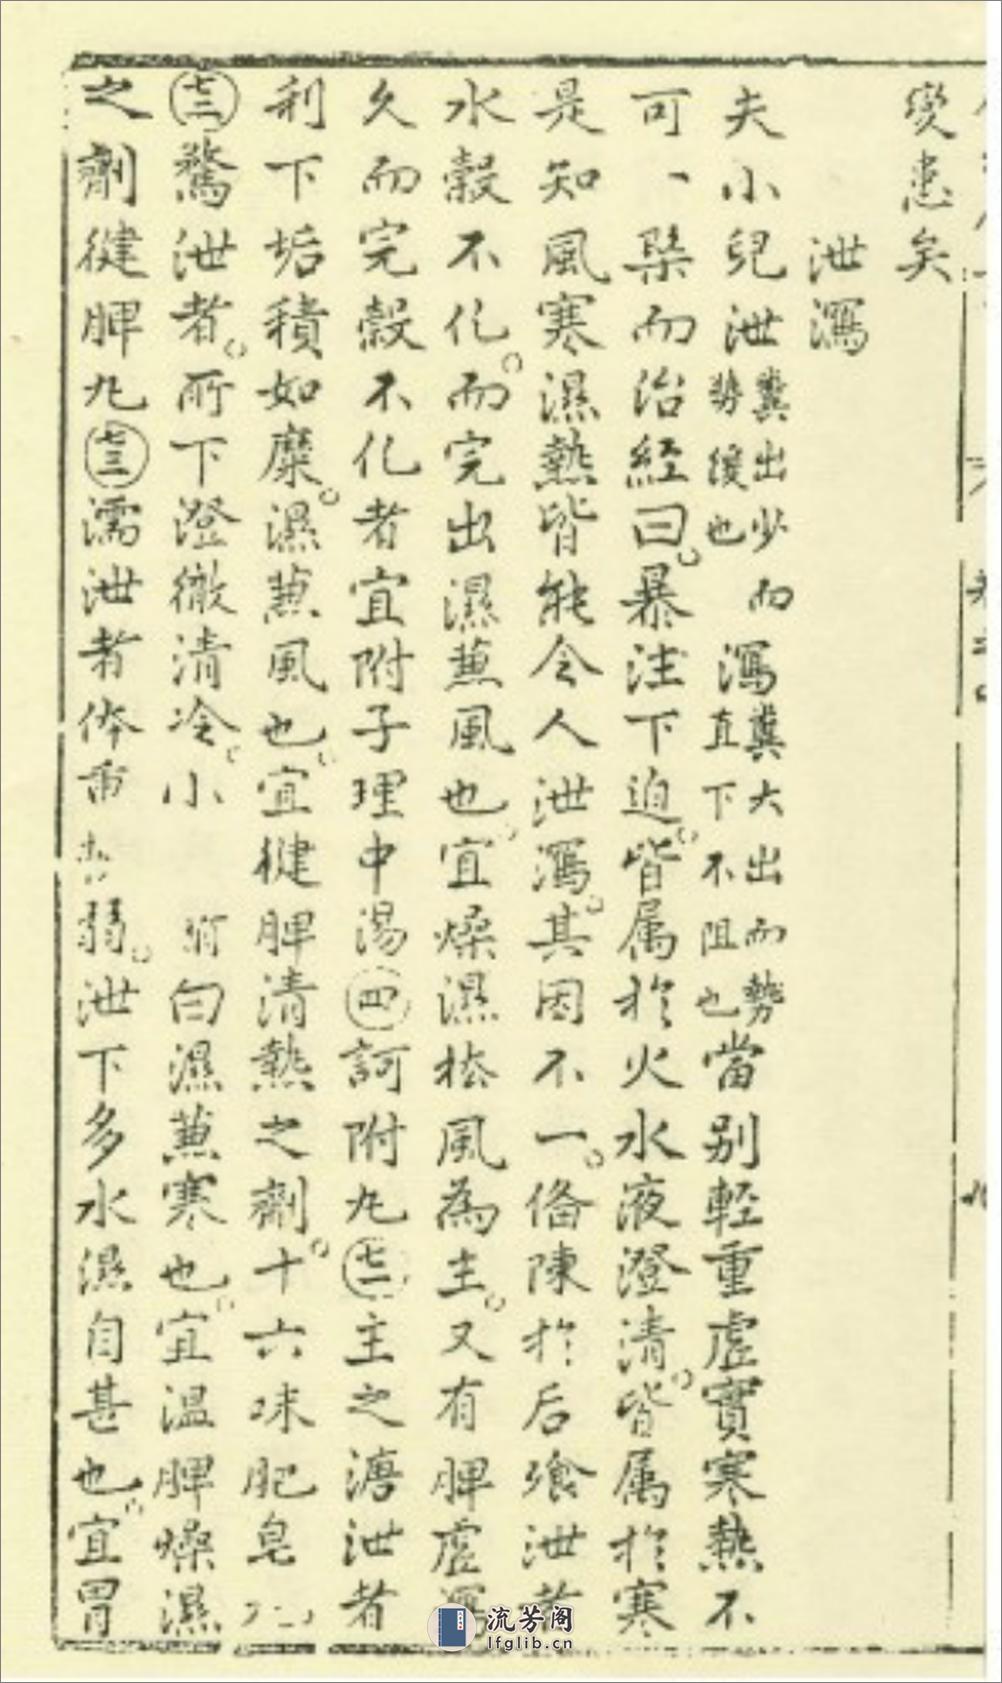 變患矣
泄瀉
夫小兒泄糞出少而勢緩也瀉糞大出而勢直下不阻也當別輕重虛實寒熱不
可一槩而治經曰暴注下迫皆属於火水液澄清皆属於寒
是知風寒濕熱皆能令人泄瀉其因不一俻陳於后飱泄者
水穀不化而完出濕兼風也宜燥濕松風為主又有脾虛瀉
久而完穀不化者宜附子理中湯四訶附丸七一主之溏泄者
利下垢積如糜濕兼風也宜健脾清熱之劑十六味肥皂
七二鶩泄者所下澄徹清冷小曰濕兼寒也宜温脾燥濕
之劑健脾丸七三濡泄者体重弱泄下多水濕自甚也宜胃
流芳阁
lfglib.cn